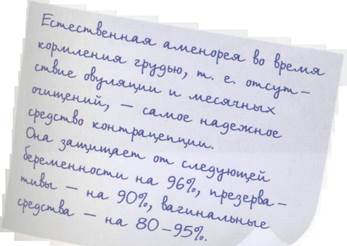 Естественная аменорея во время
кормления грудью, т. е. отсут-
ствие овуляции и месячных
очищений, — самое надежное
средство контрацепции.
Она защищает от следующей
беременности на 96%, презерва-
тивы — на 90%, вагинальные
средства — на 80-95%.